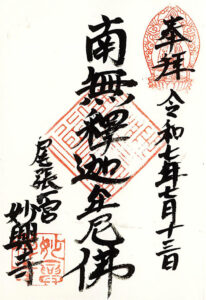 奉拝
令和七年七月十三日
南無釋迦牟尼佛
尾張一宮
妙興寺